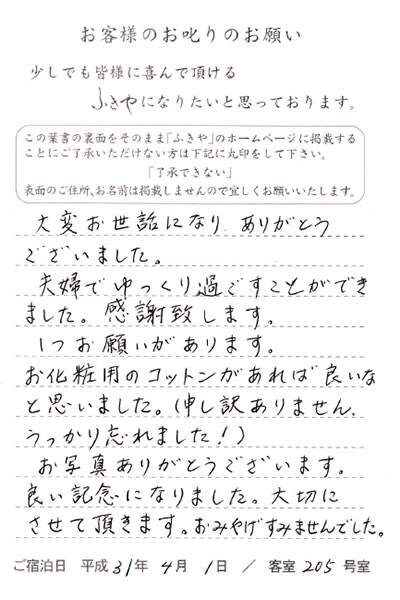 お客様のお叱りのお願い
少しでも皆様に喜んで頂ける
ふきやになりたいと思っております。
この葉書の裏面をそのまま「ふきや」のホームページに掲載する
ことにご了承いただけない方は下記に丸印をして下さい。
「了承できない」
表面のご住所、お名前は掲載しませんので宜しくお願いいたします。
大変お世話になり、ありがとう
ございました。
夫婦でゆっくり過ごすことができ
ました。感謝致します。
1つお願いがあります。
お化粧用のコットンがあれば良いな
と思いました。(申し訳ありません、
うっかり忘れました!)
お写真ありがとうございます。
良い記念になりました。大切に
させて頂きます。おみやげすみませんでした。
ご宿泊日 平成31年4月1日 / 客室205号室